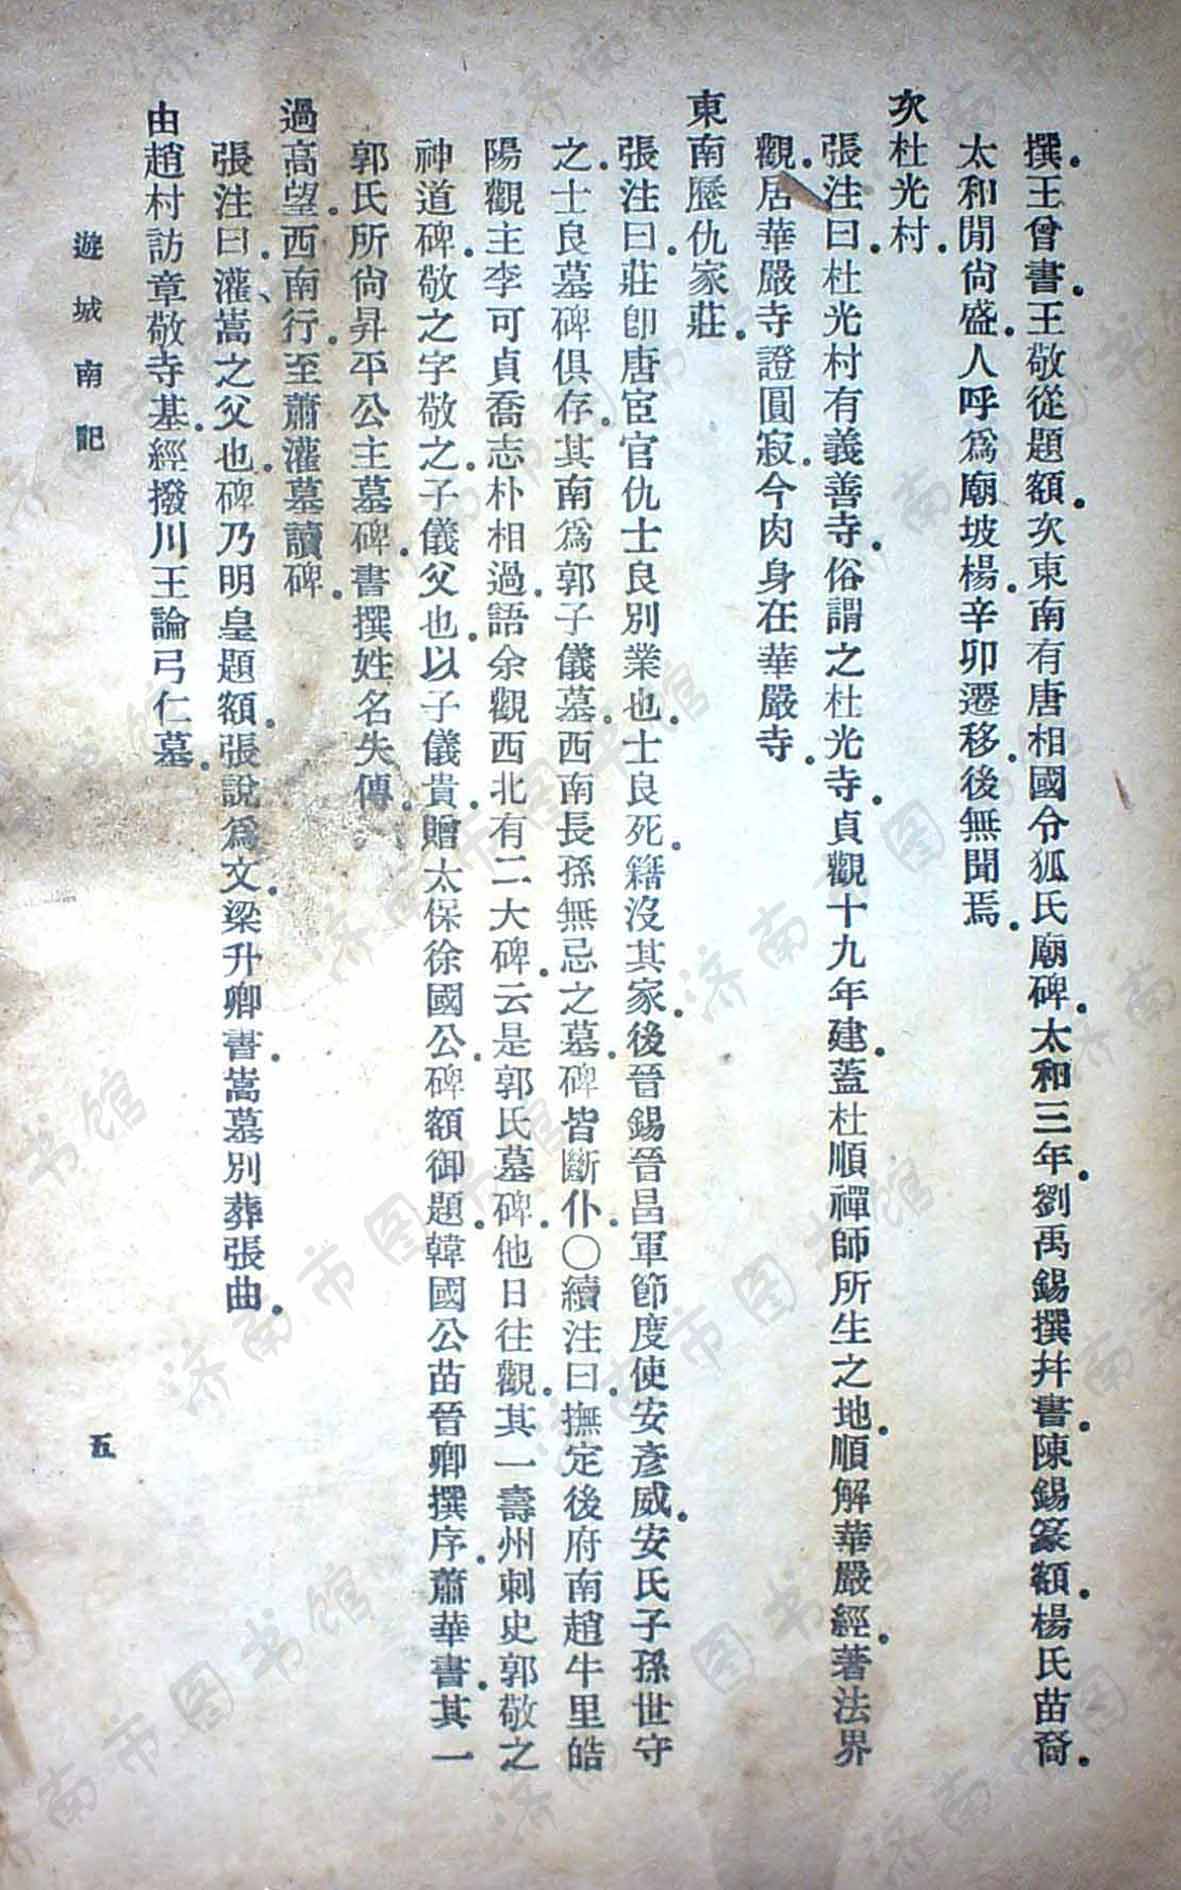 撰。王曾書。王敬從題額。次東南有唐相國令狐氏廟碑。太和三年。劉禹錫撰幷書。陳錫篆額。楊氏苗裔。
太和閒尙盛。人呼爲廟坡楊。辛卯遷移。後無聞焉。
次杜光村。
張注曰。杜光村有義善寺。俗謂之杜光寺。貞觀十九年建。蓋杜順禪師所生之地。順解華嚴經。著法界
觀。居華嚴寺證圓寂。今肉身在華嚴寺。
東南歷仇家莊。
張注曰。莊卽唐宦官仇士良別業也。士良死。籍沒其家。後晉錫晉昌軍節度使安彥威。安氏子孫世守
之。士良墓碑俱存。其南爲郭子儀墓。西南長孫無忌之墓。碑皆斷仆。〇續注曰。撫定後府南趙牛里皓
陽觀主李可貞喬志朴相過。語余觀西北有二大碑。云是郭氏墓碑。他日往觀。其一壽州刺史郭敬之
神道碑。敬之字敬之。子儀父也。以子儀貴。贈太保徐國公。碑額御題。韓國公苗晉卿撰序。蕭華書。其一
郭氏所尙昇平公主墓碑。書撰姓名失傳。
過高望。西南行。至蕭灌墓讀碑。
張注曰。灌、嵩之父也。碑乃明皇題額。張說爲文。梁升卿書。嵩墓別葬張曲。
由趙村訪章敬寺基。經撥川王論弓仁墓。
遊城南記
五
济南市图书馆